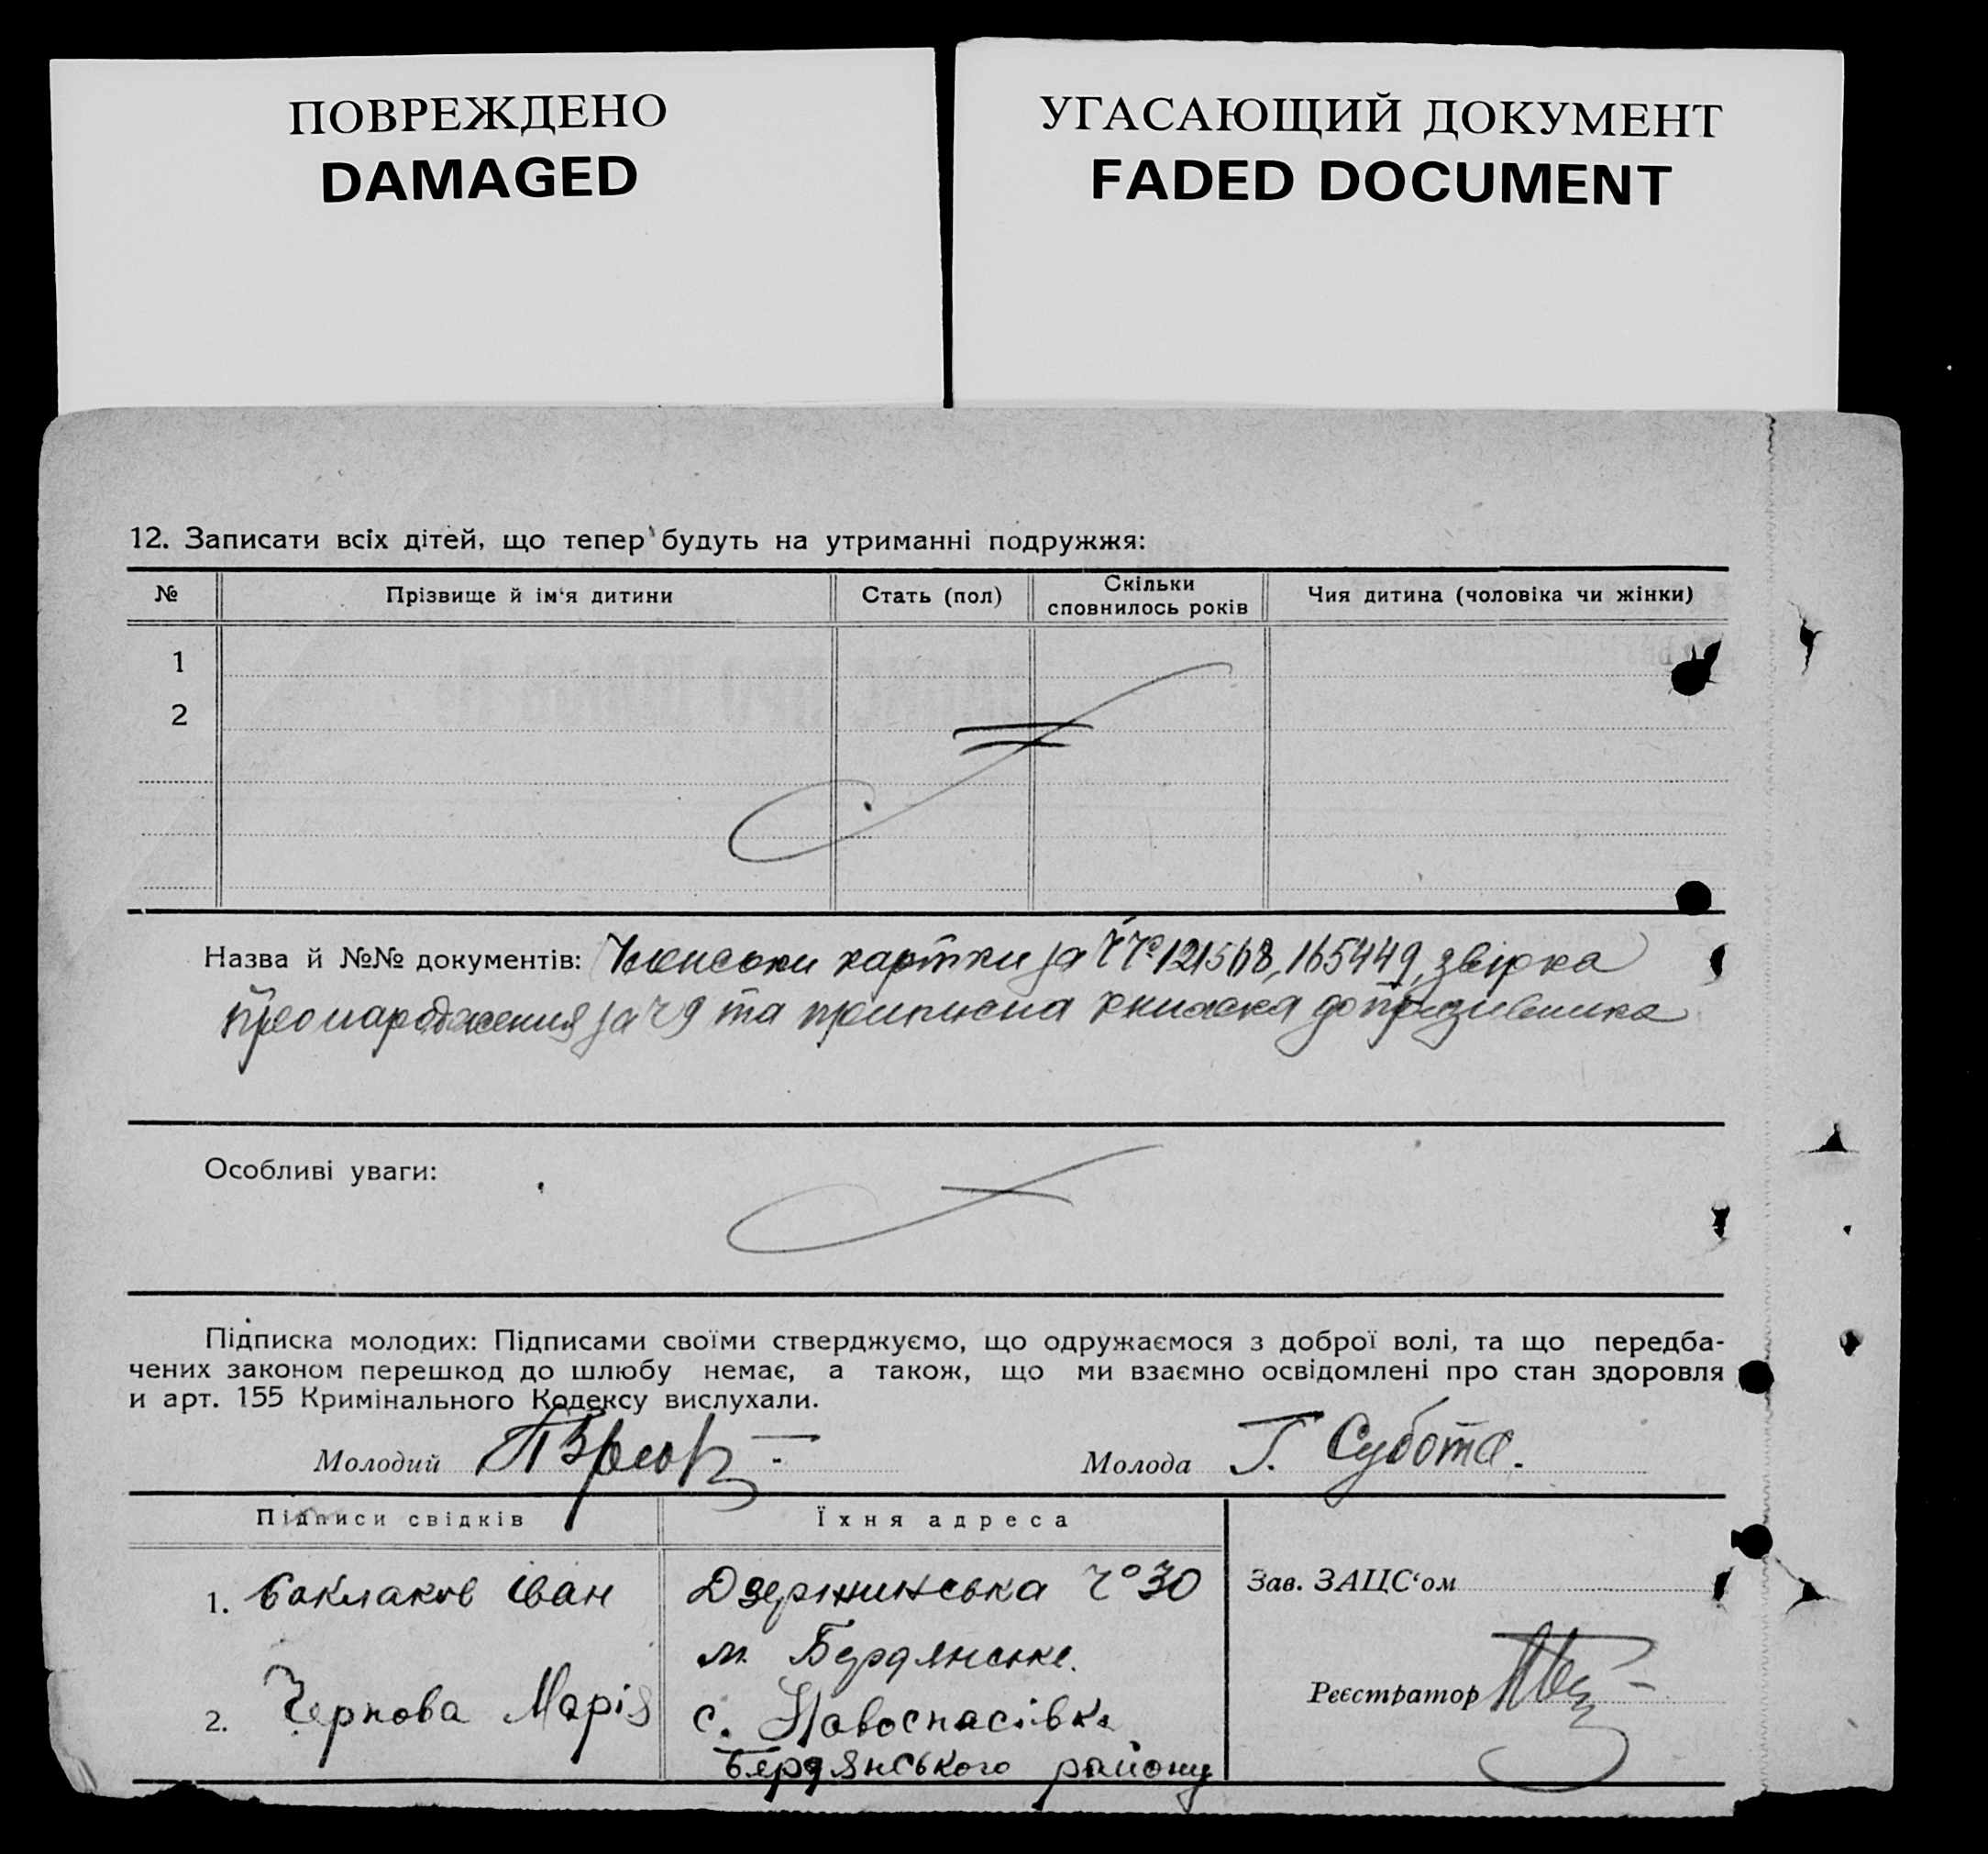 ПОВРЕЖДЕНО
DAMAGED
УГАСАЮЩИЙ ДОКУМЕНТ
FADED DOCUMENT
12. Записати всіх дітей, що тепер будуть на утриманні подружжя:
№ Прізвище й ім'я дитини Стать (пол) Скільки сповнилось років Чия дитина (чоловіка чи жінки)
1
2
Назва й №№ документів: Членськи картки за Ч Ч° 121568, 165449, звірка
про народження за Ч 9 та приписна книжка допризивника
Особливі уваги:
Підписка молодих: Підписами своїми стверджуємо, що одружаємося з доброї волі, та що передба-
чених законом перешкод до шлюбу немає, а також, що ми взаємно освідомлені про стан здоровля
и арт. 155 Кримінального Кодексу вислухали.
Молодий Молода Г. Субота.
Підписи свідків Їхня адреса
1. Баклаков Іван Дзержинська Ч° 30
м. Бердянське.
Зав. ЗАЦС'ом
2. Чернова Марія с. Новоспасівка
Бердянського району
Реєстратор